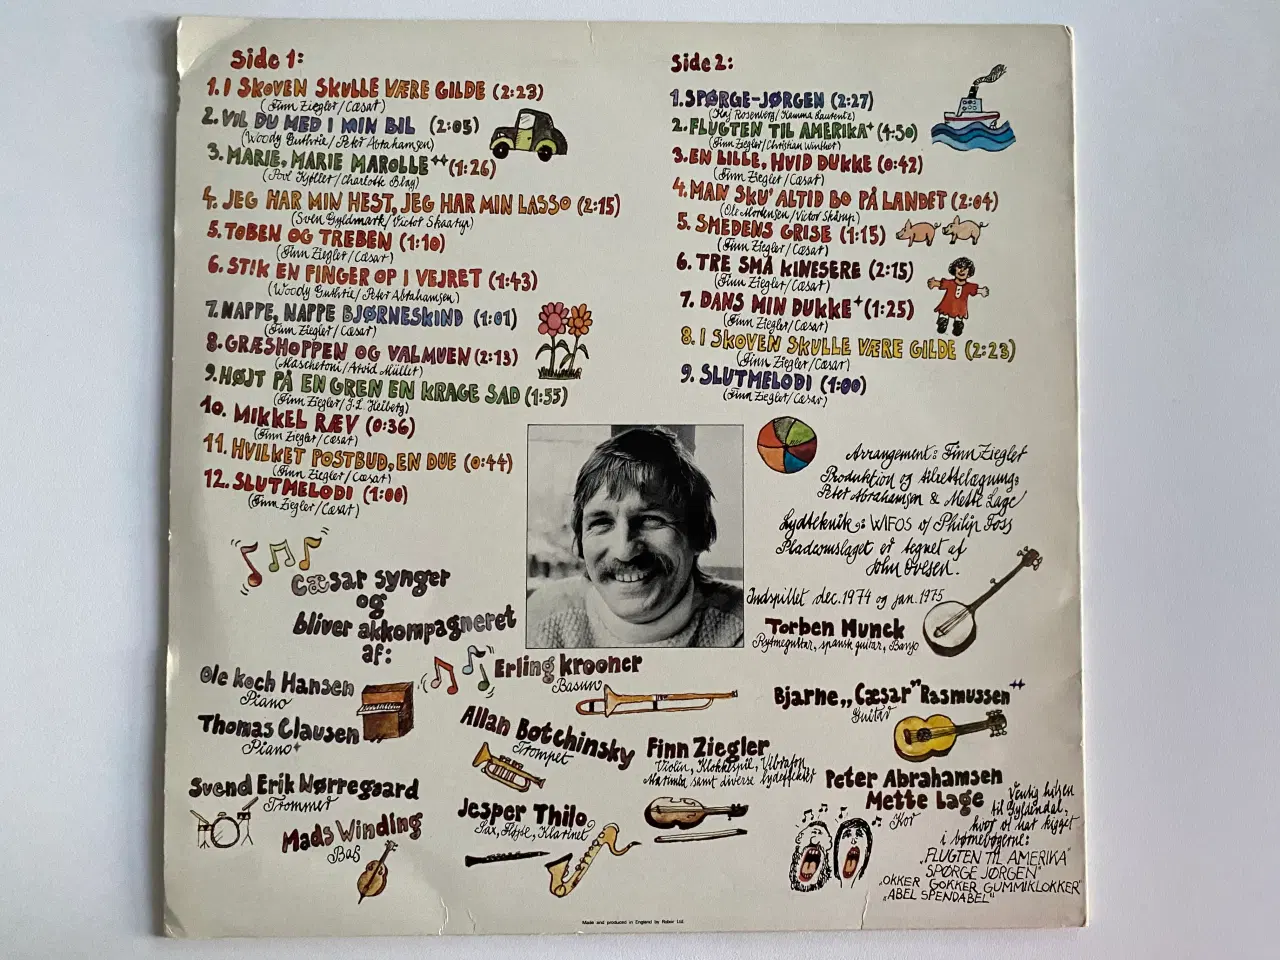 Side 1:
1. I SKOVEN SKULLE VÆRE GILDE (2:23)
(Finn Ziegler/Cæsar)
2. VIL DU MED I MIN BIL (2:05)
(Woody Guthrie/Peter Abrahamsen)
3. MARIE, MARIE MAROLLE++ (1:26)
(Povl Kjøller/Charlotte Blay)
4. JEG HAR MIN HEST, JEG HAR MIN LASSO (2:15)
(Sven Gyldmark/Victor Skaarup)
5. TOBEN OG TREBEN (1:10)
(Finn Ziegler/Cæsar)
6. STIK EN FINGER OP I VEJRET (1:43)
(Woody Guthrie/Peter Abrahamsen)
7. NAPPE, NAPPE BJØRNESKIND (1:01)
(Finn Ziegler/Cæsar)
8. GRÆSHOPPEN OG VALMUEN (2:13)
(Mascheroni/Arvid Müller)
9. HØJT PÅ EN GREN EN KRAGE SAD (1:55)
(Finn Ziegler/J.L. Heiberg)
10. MIKKEL RÆV (0:36)
(Finn Ziegler/Cæsar)
11. HVILKET POSTBUD, EN DUE (0:44)
(Finn Ziegler/Cæsar)
12. SLUTMELODI (1:00)
(Finn Ziegler/Cæsar)
Side 2:
1. SPØRGE-JØRGEN (2:27)
(Kaj Rosenberg/Kamma Laurentz)
2. FLUGTEN TIL AMERIKA+ (4:50)
(Finn Ziegler/Christian Winther)
3. EN LILLE, HVID DUKKE (0:42)
(Finn Ziegler/Cæsar)
4. MAN SKU' ALTID BO PÅ LANDET (2:04)
(Ole Mortensen/Victor Skårup)
5. SMEDENS GRISE (1:15)
(Finn Ziegler/Cæsar)
6. TRE SMÅ KINESERE (2:15)
(Finn Ziegler/Cæsar)
7. DANS MIN DUKKE+ (1:25)
(Finn Ziegler/Cæsar)
8. I SKOVEN SKULLE VÆRE GILDE (2:23)
(Finn Ziegler/Cæsar)
9. SLUTMELODI (1:00)
(Finn Ziegler/Cæsar)
Arrangement: Finn Ziegler
Produktion og tilrettelægning:
Peter Abrahamsen & Mette Lage
Lydteknik: WIFOS v/ Philip Foss
Pladeomslaget er tegnet af
John Ovesen.
Indspillet dec. 1974 og jan. 1975
Cæsar synger
og
bliver akkompagneret
af:
Ole Koch Hansen
Piano
Thomas Clausen
Piano+
Svend Erik Nørregaard
Trommer
Mads Winding
Bas
Erling Krooner
Basun
Allan Botchinsky
Trompet
Jesper Thilo
Sax, Fløjte, Klarinet
Finn Ziegler
Violin, Klokkespil, Vibrafon,
Marimba samt diverse lydeffekter
Torben Munck
Rytmeguitar, spansk guitar, Banjo
Bjarne „Cæsar" Rasmussen++
Guitar
Peter Abrahamsen
Mette Lage
Kor
Venlig hilsen
til Gyldendal,
hvor vi har kigget
i børnebøgerne:
„FLUGTEN TIL AMERIKA"
SPØRGE JØRGEN"
„OKKER GOKKER GUMMIKLOKKER"
„ABEL SPENDABEL"
Made and produced in England by Robor Ltd.